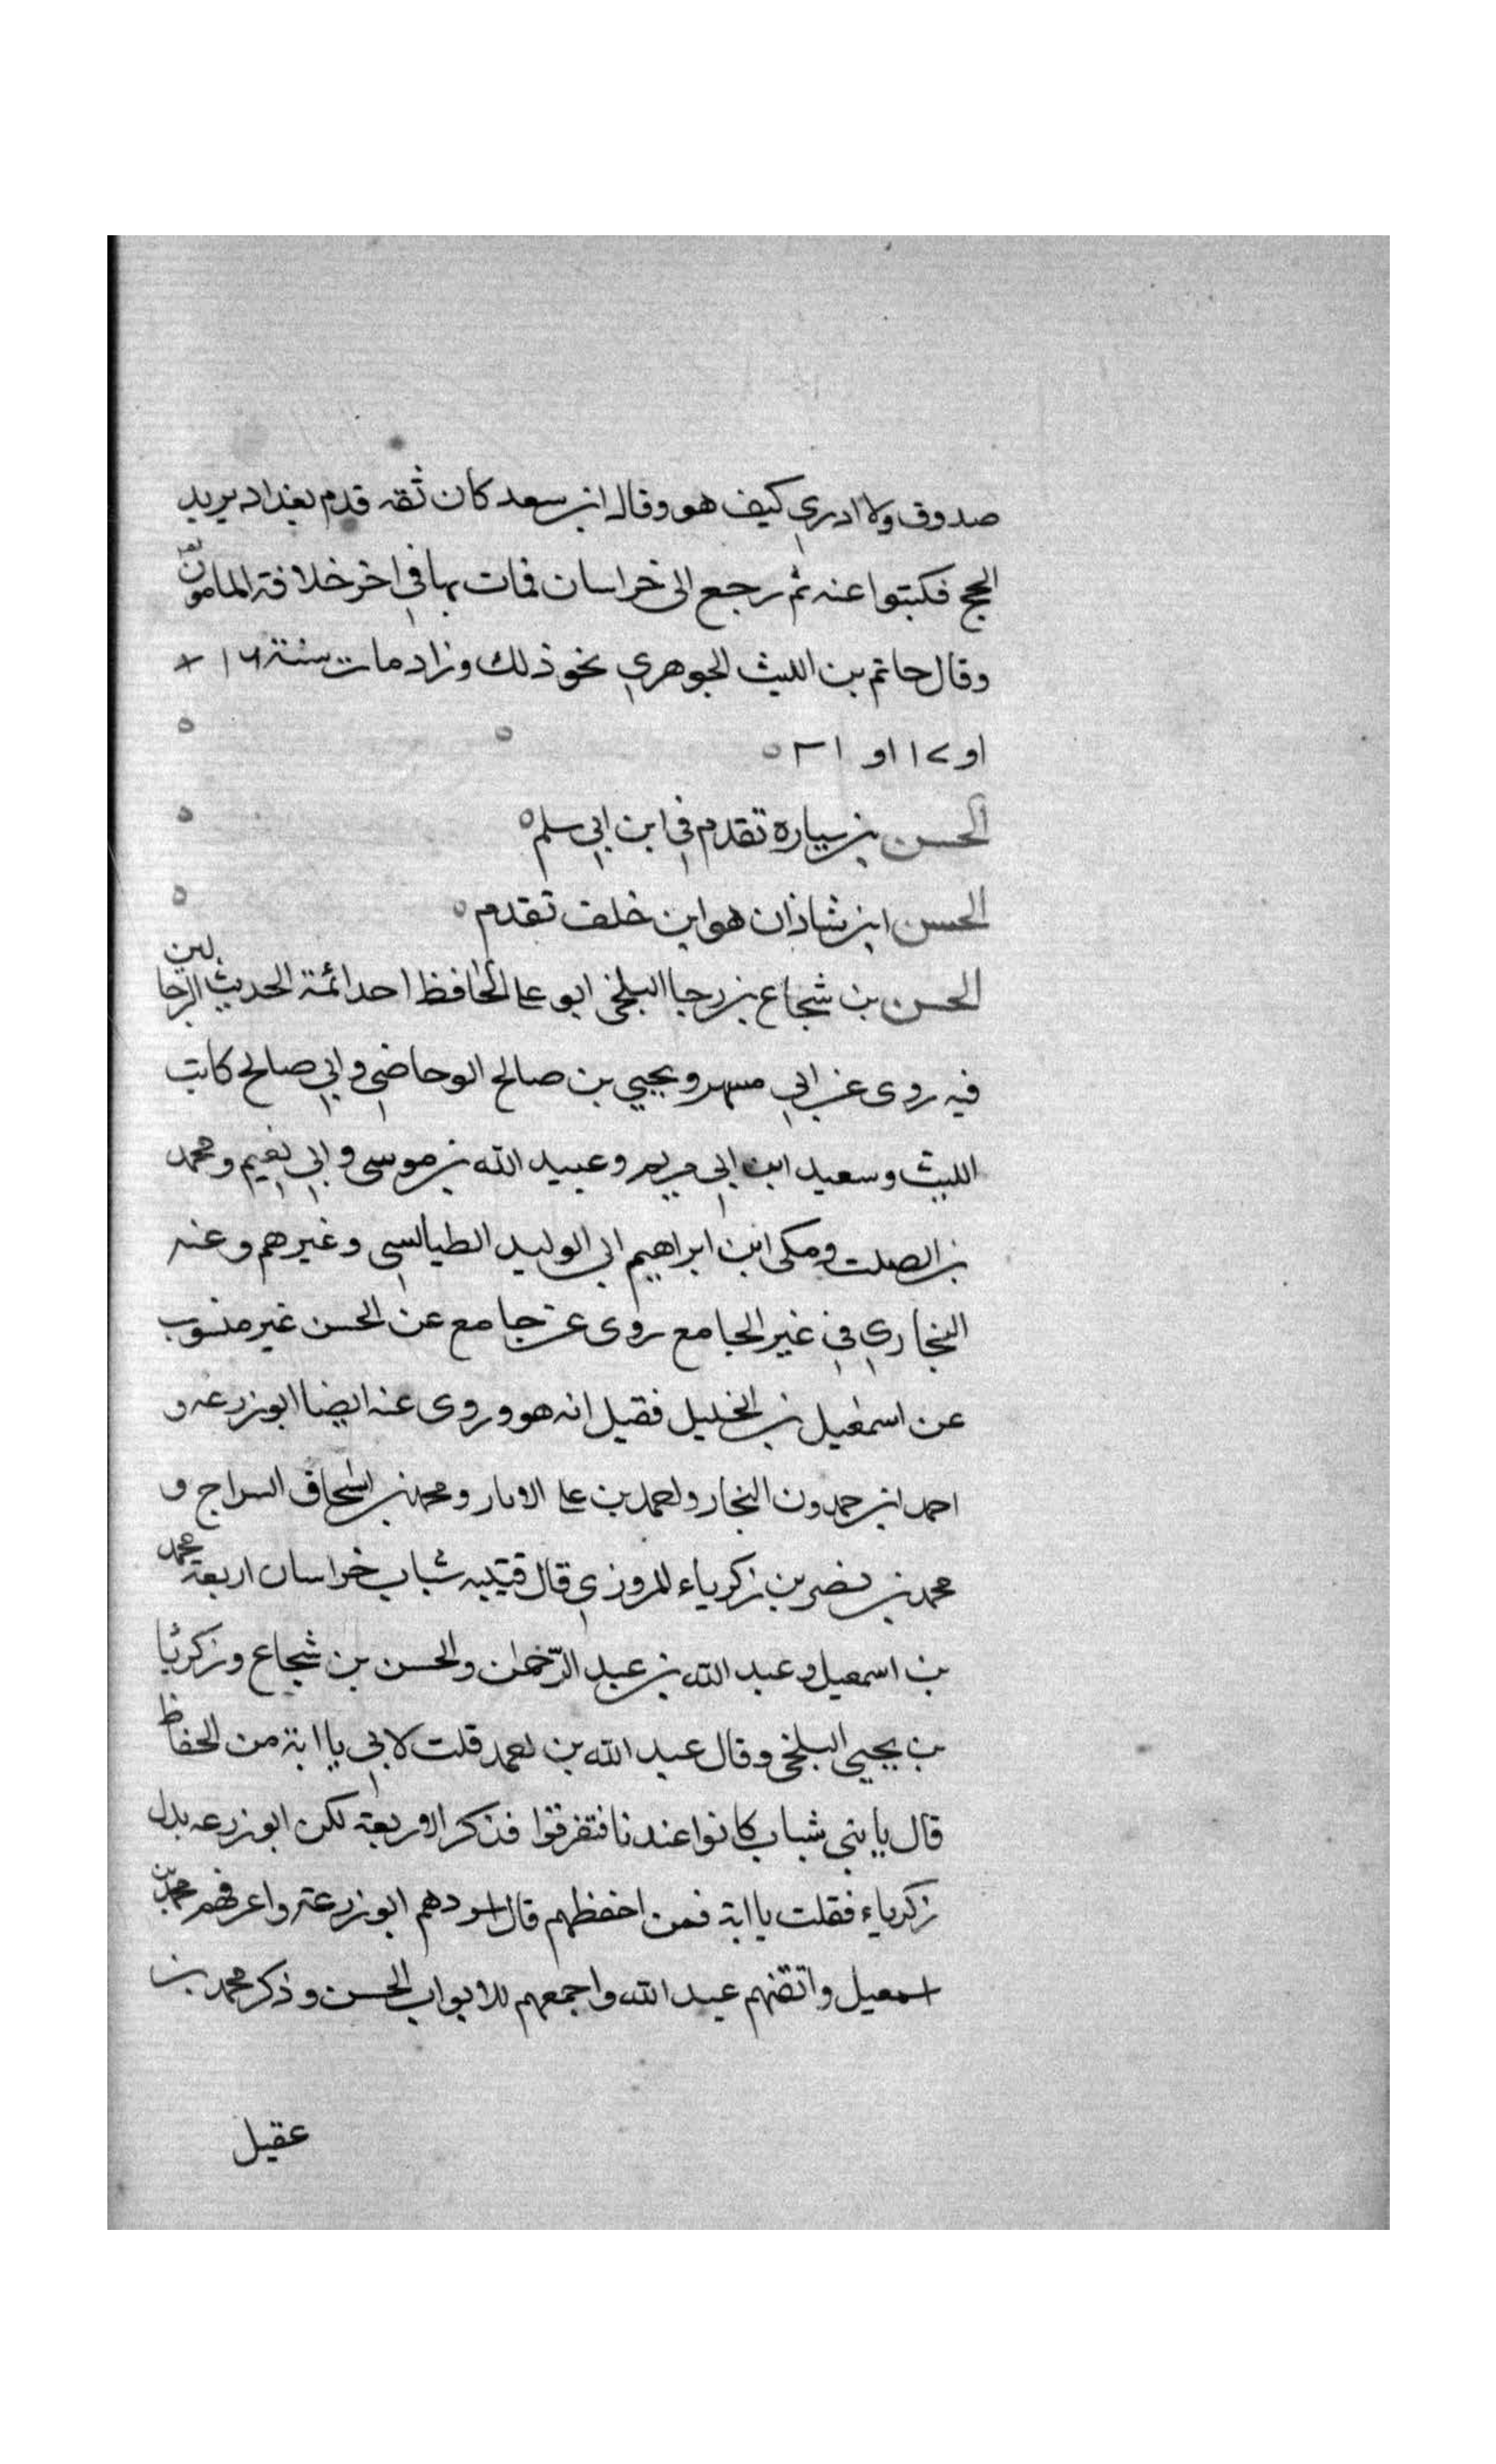 صدوق ولا ادري كيف هو وقال ابن سعد كان ثقه قدم بغداد يريد
الحج فكتبوا عنه ثم رجع الى خراسان فمات بها في اخر خلافة المامون
وقال حاتم بن الليث الجوهري نحو ذلك وزاد مات سنة
او
الحسن بن سياره تقدم في ابن ابي سلم
الحسن ابن شاذان هو ابن خلف تقدم
الحسن بن شجاع بن رجا البلخي ابو علي الحافظ احد ائمة الحديث الرحالين
فيه روى عن ابي مسهر ويحيي بن صالح الوحاضي وابي صالح كاتب
الليث وسعيد ابن ابي مريم وعبيد الله بن موسى وابي نعيم ومحمد
بن الصلت ومكى ابن ابراهيم ابي الوليد الطيالسي وغيرهم وعنه
البخاري في غير الجامع روى عن جامع عن الحسن غير منسوب
عن اسمعيل بن الخليل فقيل انه هو وروى عنه ايضا ابو زرعه و
احمد ابن حمدون النجار واحمد بن علي الابار ومحمد بن اسحاق السراج و
محمد بن نصر بن زكرياء المروزي قال قتيبه شباب خراسان اربعة محمد
بن اسمعيل وعبد الله بن عبد الرحمان والحسن بن شجاع وزكريا
بن يحيى البلخي وقال عبد الله بن احمد قلت لابي يا ابة من الحفاظ
قال يا بني شباب كانوا عندنا فتفرقوا فذكر الاربعة لكن ابو زرعه بدل
زكرياء فقلت يا ابة فمن احفظهم قال اسردهم ابو زرعة واعرفهم محمد بن
اسمعيل واتقنهم عبد الله واجمعهم للابواب الحسن وذكر محمد بن
عقيل